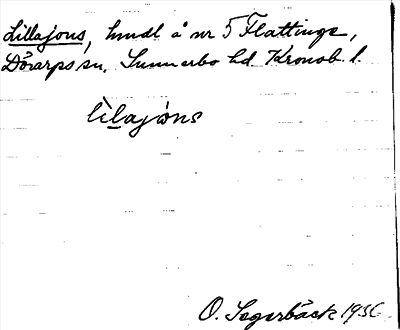 Lillajons, hmdl å nr 5 Flattinge,
Dörarps sn. Sunnerbo hd. Kronob. l.
lìlajòns
O. Segerbäck 1936